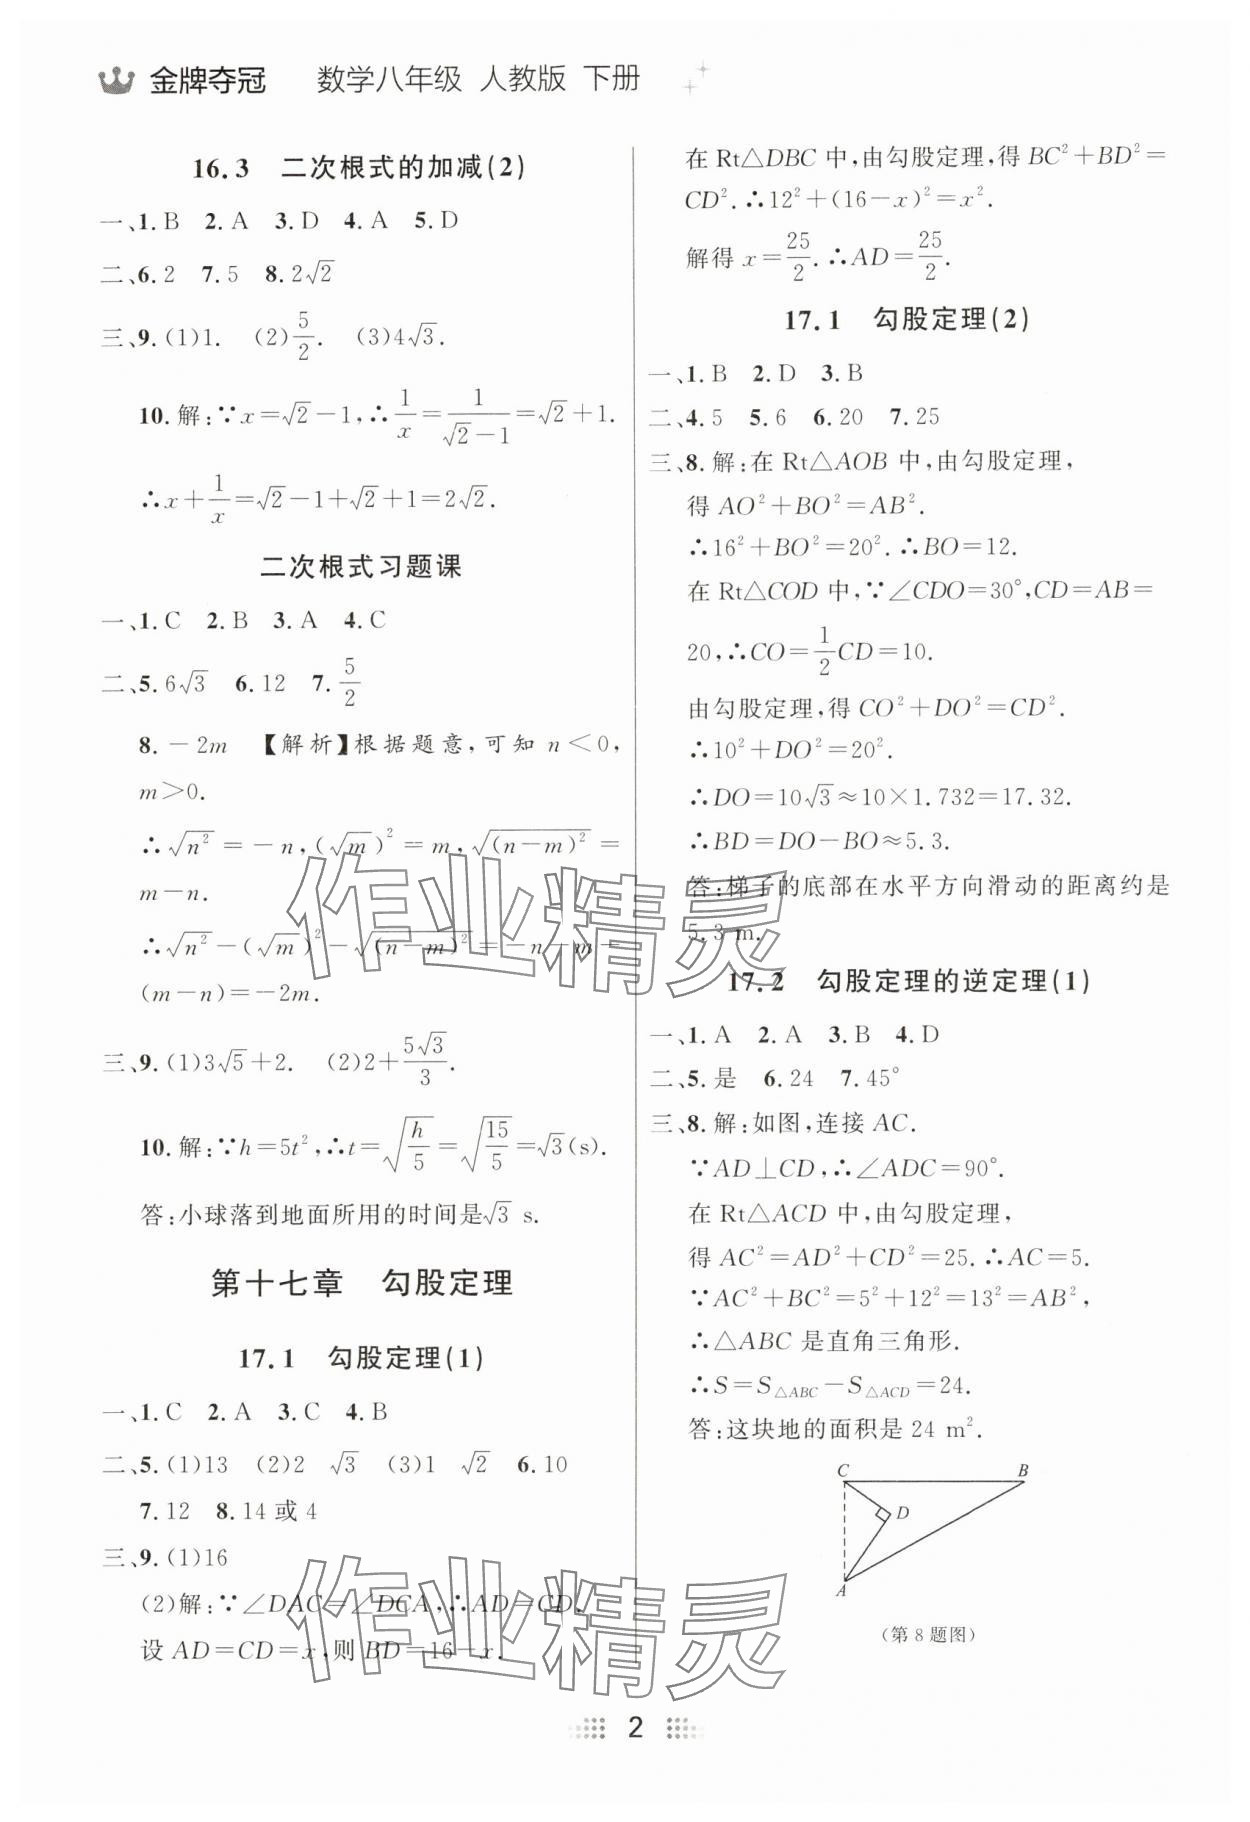 金牌夺冠 数学八年级 人教版 下册
16.3 二次根式的加减(2)
一、1.B 2.A 3.D 4.A 5.D
二、6.2 7.5 8.2√2
三、9.(1)1. (2)5/2. (3)4√3.
10.解:∵x=√2-1,∴1/x=1/(√2-1)=√2+1.
∴x+1/x=√2-1+√2+1=2√2.
二次根式习题课
一、1.C 2.B 3.A 4.C
二、5.6√3 6.12 7.5/2
8.-2m 【解析】根据题意,可知 n<0,
m>0.
∴√(n²)=-n,(√m)²=m,√((n-m)²)=
m-n.
∴√(n²)-(√m)²-√((n-m)²)=-n-m-
(m-n)=-2m.
三、9.(1)3√5+2. (2)2+5√3/3.
10.解:∵h=5t²,∴t=√(h/5)=√(15/5)=√3(s).
答:小球落到地面所用的时间是√3 s.
第十七章 勾股定理
17.1 勾股定理(1)
一、1.C 2.A 3.C 4.B
二、5.(1)13 (2)2 √3 (3)1 √2 6.10
7.12 8.14或4
三、9.(1)16
(2)解:∵∠DAC=∠DCA,∴AD=CD.
设 AD=CD=x,则 BD=16-x.
在 Rt△DBC 中,由勾股定理,得 BC²+BD²=
CD².∴12²+(16-x)²=x².
解得 x=25/2.∴AD=25/2.
17.1 勾股定理(2)
一、1.B 2.D 3.B
二、4.5 5.6 6.20 7.25
三、8.解:在 Rt△AOB 中,由勾股定理,
得 AO²+BO²=AB².
∴16²+BO²=20².∴BO=12.
在 Rt△COD 中,∵∠CDO=30°,CD=AB=
20,∴CO=1/2CD=10.
由勾股定理,得 CO²+DO²=CD².
∴10²+DO²=20².
∴DO=10√3≈10×1.732=17.32.
∴BD=DO-BO≈5.3.
答:梯子的底部在水平方向滑动的距离约是
5.3 m.
17.2 勾股定理的逆定理(1)
一、1.A 2.A 3.B 4.D
二、5.是 6.24 7.45°
三、8.解:如图,连接 AC.
∵AD⊥CD,∴∠ADC=90°.
在 Rt△ACD 中,由勾股定理,
得 AC²=AD²+CD²=25.∴AC=5.
∵AC²+BC²=5²+12²=13²=AB²,
∴△ABC 是直角三角形.
∴S=S△ABC-S△ACD=24.
答:这块地的面积是 24 m².
C B
D
A
(第 8 题图)
作业精灵
作业精灵
2